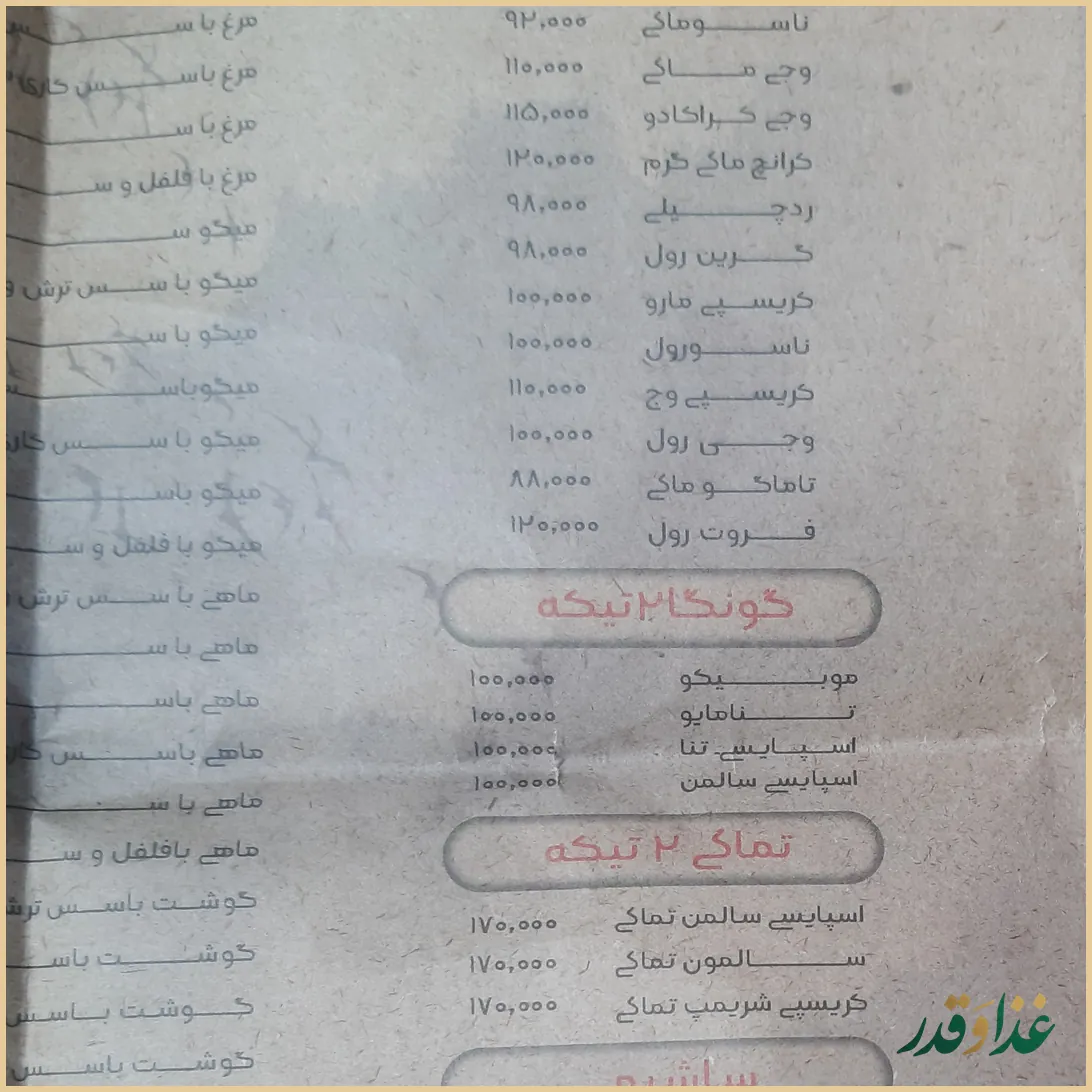 ناسوماکی ۹۲,۰۰۰
وجی ماکی ۱۱۰,۰۰۰
وجی کراکادو ۱۱۵,۰۰۰
کرانچ ماکی گرم ۱۲۰,۰۰۰
ردچیلی ۹۸,۰۰۰
گرین رول ۹۸,۰۰۰
کریسپی مارو ۱۰۰,۰۰۰
ناسورول ۱۰۰,۰۰۰
کریسپی وج ۱۱۰,۰۰۰
وجی رول ۱۰۰,۰۰۰
تاماگو ماکی ۸۸,۰۰۰
فروت رول ۱۲۰,۰۰۰
گونگا ۲ تیکه
موبیکو ۱۰۰,۰۰۰
تنامایو ۱۰۰,۰۰۰
اسپایسی تنا ۱۰۰,۰۰۰
اسپایسی سالمن ۱۰۰,۰۰۰
تماکی ۲ تیکه
اسپایسی سالمن تماکی ۱۷۰,۰۰۰
سالمون تماکی ۱۷۰,۰۰۰
کریسپی شریمپ تماکی ۱۷۰,۰۰۰
مرغ با سس
مرغ باسس کاری
مرغ با س
مرغ با فلفل و س
میگو س
میگو با سس ترش و
میگو با س
میگوباس
میگو با سس کاری
میگو باس
میگو با فلفل و س
ماهی با سس ترش
ماهی با س
ماهی باس
ماهی باسس کاری
ماهی با س
ماهی بافلفل و س
گوشت باسس ترش
گوشت باس
گوشت باسس
گوشت باسس
غذا و قدر